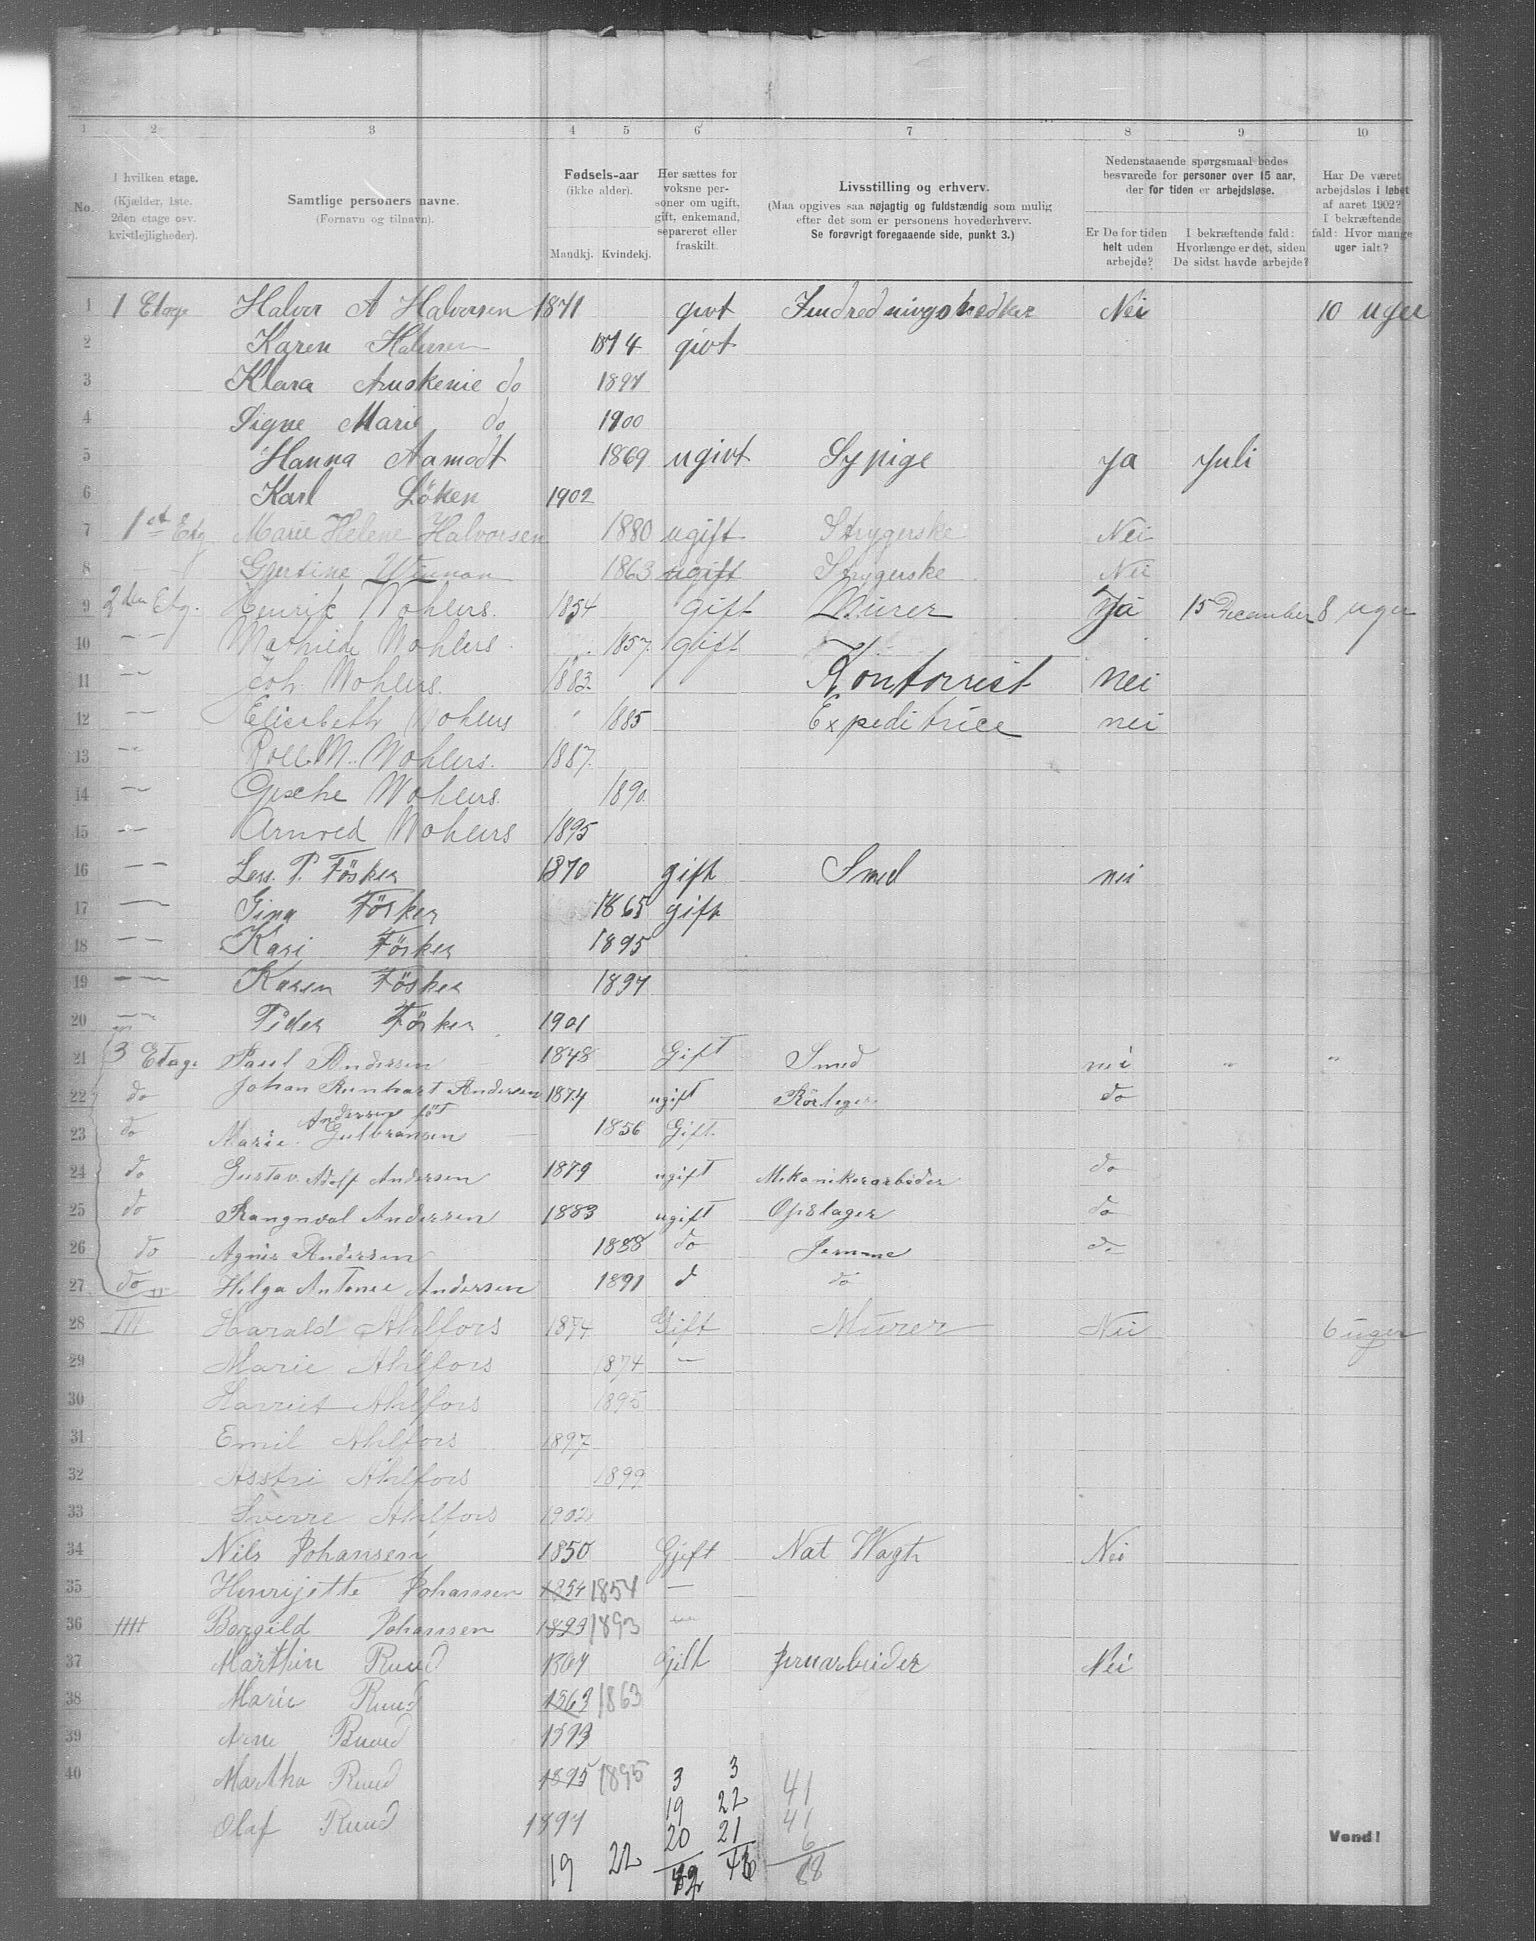 1 2 3 4 5 6 7 8 9 10
No.
I hvilken etage.
(Kjælder, 1ste.
2den etage osv.
kvistlejligheder).
Samtlige personers navne.
(Fornavn og tilnavn).
Fødsels-aar
(ikke alder).
Mandkj. Kvindekj.
Her sættes for
voksne per-
soner om ugift,
gift, enkemand,
separeret eller
fraskilt.
Livsstilling og erhverv.
(Maa opgives saa nøjagtig og fuldstændig som mulig
efter det som er personens hovederhverv.
Se forøvrigt foregaaende side, punkt 3.)
Nedenstaaende spørgsmaal bedes
besvarede for personer over 15 aar,
der for tiden er arbejdsløse.
Er De for tiden
helt uden
arbejde?
I bekræftende fald:
Hvorlænge er det, siden
De sidst havde arbejde?
Har De været
arbejdsløs i løbet
af aaret 1902?
I bekræftende
fald: Hvor mange
uger ialt?
1 1 Etage Halvor A Halvorsen 1871 givt Nei 10 uger
2 Karen Halvorsen 1874 givt
3 Klara do 1897
4 Signe Marie do 1900
5 Hanna Aamodt 1869 ugivt Sypige Ja Juli
6 Karl Löken 1902
7 1st Etg Marie Helene Halvorsen 1880 ugift Strygerske Nei
8 Gjertine 1863 ugift Strygerske Nei
9 2den Etg. Henrik Wohlers. 1854 gift Murer Ja 15 December 8 uger
10 — — Mathilde Wohlers. 1857. gift
11 — — Joh. Wohlers. 1883. Kontorrist nei
12 — — Elisabeth Wohlers " 1885 Expeditrice nei
13 — — Rolf M. Wohlers. 1887.
14 — Wohlers. 1890.
15 — — Arnved Wohlers 1895
16 — — P. Fösker 1870 gift Smed nei
17 — Gina Fösker 1865 gift
18 — — Kari Fösker 1895
19 — — Karen Fösker 1897
20 — — Peder Fösker. 1901
21 3 Etage Paul Andersen 1848 Gift Smed nei " "
22 do Johan Andersen 1874 ugift Rörleger do
Andersen föt
23 do Marie. Gulbransen — 1856 Gift.
24 do Gustav Adolf Andersen 1879 ugift Mekanikerarbeider do
25 do Rangnval Andersen 1883 ugift Opslager do
26 do Agnes Andersen 1888 do Jemme do
27 do Helga Antonie Andersen 1891 d do
28 III Harald Ahlfors 1874 Gift Murer Nei 6 uger
29 Marie Ahlfors 1874 —
30 Harriet Ahlfors 1895
31 Emil Ahlfors 1897
32 Asstri Ahlfors 1899
33 Sverre Ahlfors 1902
34 Nils Johansen 1850 Gjift Nat Wagt Nei
35 Henrijette Johansen 1854 1854 —
36 IIII Borgild Johansen 1893 1893 —
37 Marthin Ruud 1867 Gift Jernarbeider Nei
38 Marie Ruud 1863 1863
39 Arne Ruud 1893
40 Martha Ruud 1895 1895 3 3 41
Olaf Ruud 1897 19 22 41
20 21 6
19 22 42 46 88
Vend!